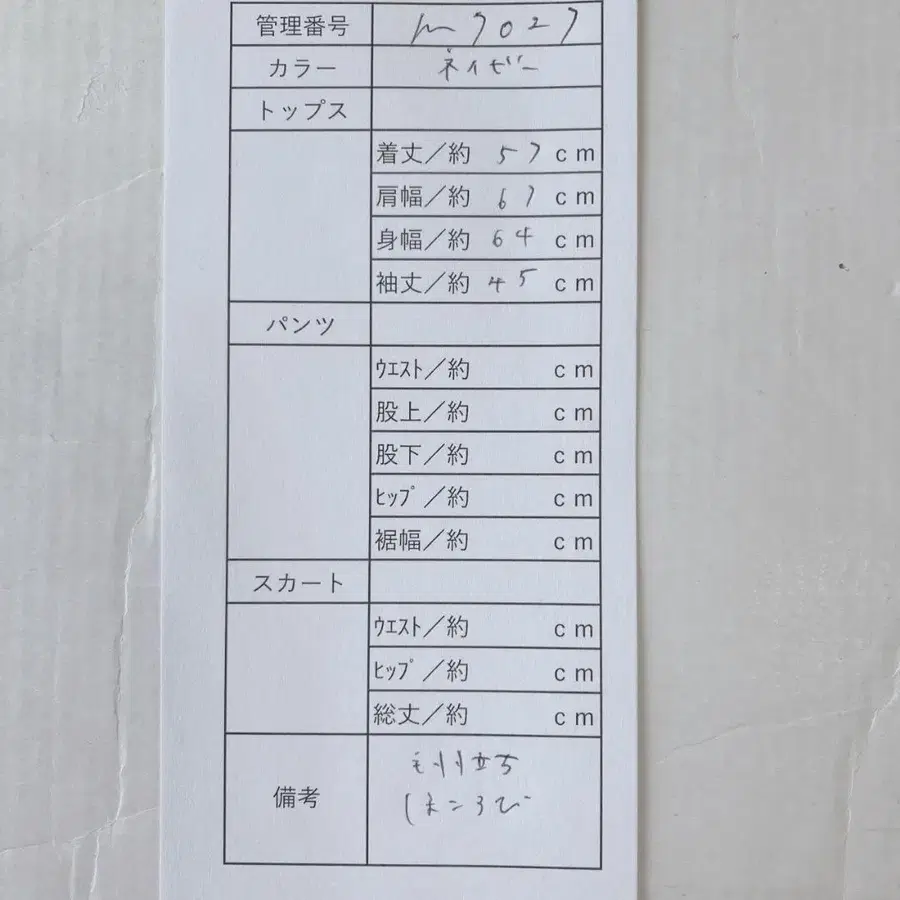 管理番号 m7027
カラー ネイビー
トップス
着丈／約 57 cm
肩幅／約 67 cm
身幅／約 64 cm
袖丈／約 45 cm
パンツ
ウエスト／約 cm
股上／約 cm
股下／約 cm
ヒップ／約 cm
裾幅／約 cm
スカート
ウエスト／約 cm
ヒップ／約 cm
総丈／約 cm
備考
毛羽立ち
ほころび